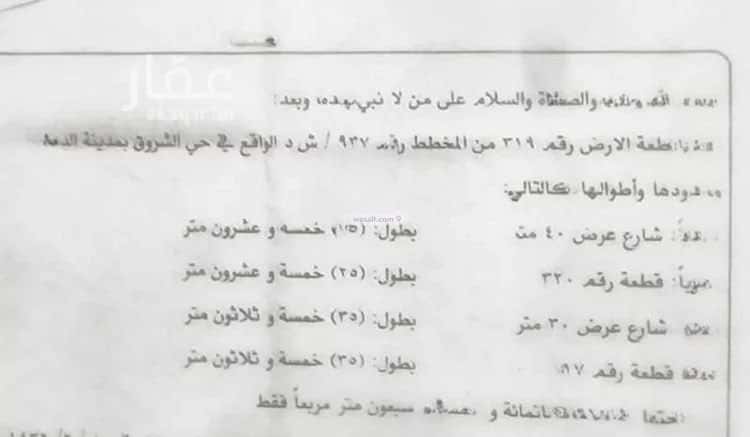 عقار
الله والصلاة والسلام على من لا نبي بعده، وبعد:
قطعة الارض رقم ٣١٩ من المخطط رقم ٩٣٧ / ش د الواقع في حي الشروق بمدينة
حدودها وأطوالها كالتالي:
شارع عرض ٤٠ متر بطول: (٢٥) خمسه و عشرون متر
wasalt.com
قطعة رقم ٣٢٠ بطول: (٢٥) خمسة و عشرون متر
شارع عرض ٣٠ متر بطول: (٣٥) خمسة و ثلاثون متر
قطعة رقم بطول: (٣٥) خمسة و ثلاثون متر
و سبعون متر مربعاً فقط